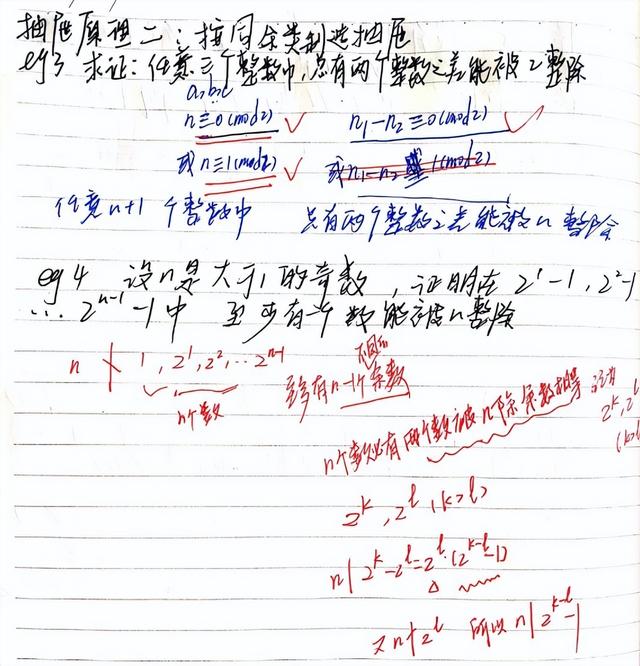 抽屉原理二：按同余类制造抽屉
eg3 求证：任意三个整数中，总有两个整数之差能被2整除
a,b,c
n≡0(mod2) ✓ n₁-n₂≡0(mod2) ✓
或 n≡1(mod2) ✓ 或n₁-n₂ 1(mod2)
任意n+1个整数中 总有两个整数之差能被n整除
eg4 设n是大于1的奇数，证明在2¹-1，2²-1
… 2ⁿ⁻¹-1中 至少有一个数能被n整除
n ∤ 1，2¹，2²，…2ⁿ⁻¹ 至多有n-1个不同的余数
n个数
n个数必有两个数被n除余数相等 设为
2ᵏ，2ˡ
(k>l)
2ᵏ，2ˡ (k>l)
n | 2ᵏ-2ˡ=2ˡ·(2ᵏ⁻ˡ-1)
又n∤2ˡ 所以 n | 2ᵏ⁻ˡ-1